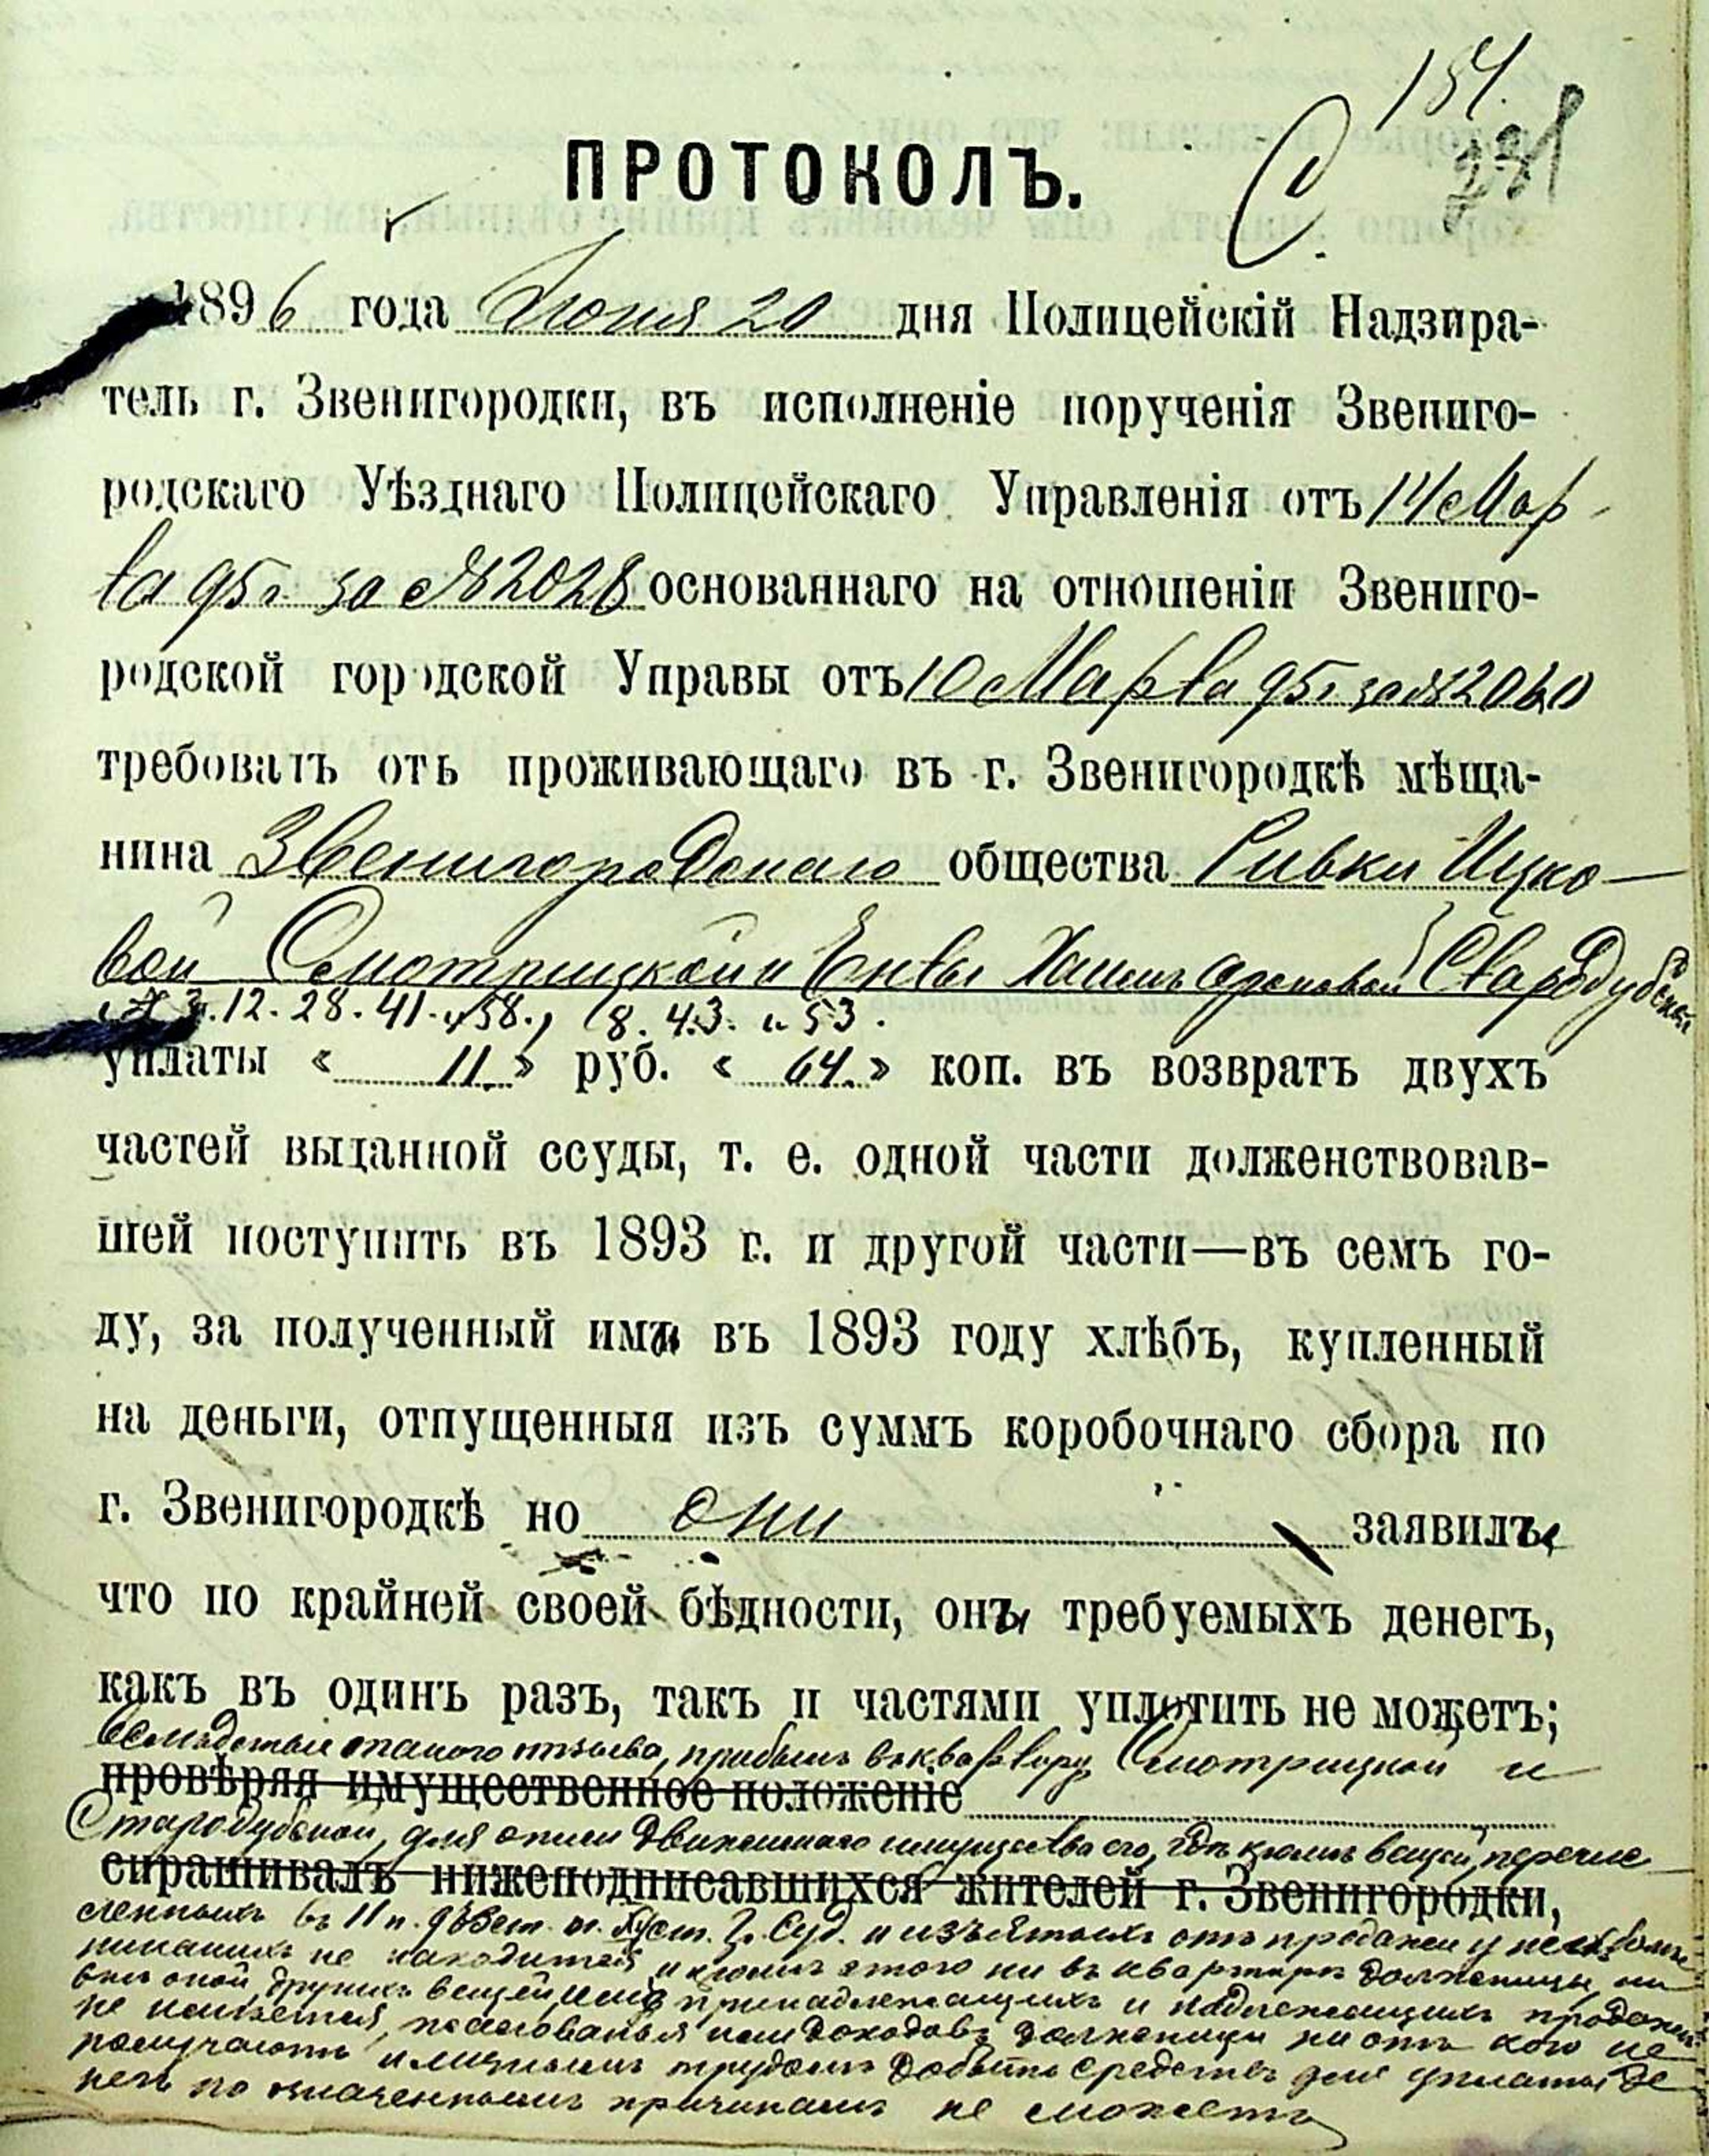 154.
231
С.
ПРОТОКОЛЪ.
1896 года Июня 20 дня Полицейскій Надзира-
тель г. Звенигородки, въ исполненіе порученія Звениго-
родскаго Уѣзднаго Полицейскаго Управленія отъ 14 Мар-
та 95 г. за № 2028 основаннаго на отношеніи Звениго-
родской городской Управы отъ 10 Марта 95 г. за № 2060
требовалъ отъ проживающаго въ г. Звенигородкѣ мѣща-
нина Звенигородскаго общества Ривки Ицко-
вой Смотрицкой и Енты Хаимъ Ароновой Стародубской
3. 12. 28. 41. и 58., 8. 43. и 53.
уплаты « 11. » руб. « 64. » коп. въ возвратъ двухъ
частей выданной ссуды, т. е. одной части долженствовав-
шей поступить въ 1893 г. и другой части—въ семъ го-
ду, за полученный ими въ 1893 году хлѣбъ, купленный
на деньги, отпущенныя изъ суммъ коробочнаго сбора по
г. Звенигородкѣ но они заявили
что по крайней своей бѣдности, они требуемыхъ денегъ,
какъ въ одинъ разъ, такъ и частями уплотить не можетъ;
Вслѣдствіе такого отзыва, прибылъ въ квартиру Смотрицкой и
провѣряя имущественное положеніе
Стародубской, для описи движимаго имущества его, гдѣ кромѣ вещей, перечис-
спрашивалъ нижеподписавшихся жителей г. Звенигородки,
ленныхъ въ 11 п. 973 ст. Уст. Гр. Суд. и изъятыхъ отъ продажи у нея болѣе
никакихъ не находится и кромѣ этого ни въ квартирѣ должницы, ни
внѣ оной, другихъ вещей, принадлежащихъ и подлежащихъ продажѣ
не имѣется, жалованья или доходовъ должницы ни отъ кого не
получаютъ и личнымъ трудомъ добыть средствъ для уплаты де-
негъ по означеннымъ причинамъ не можетъ